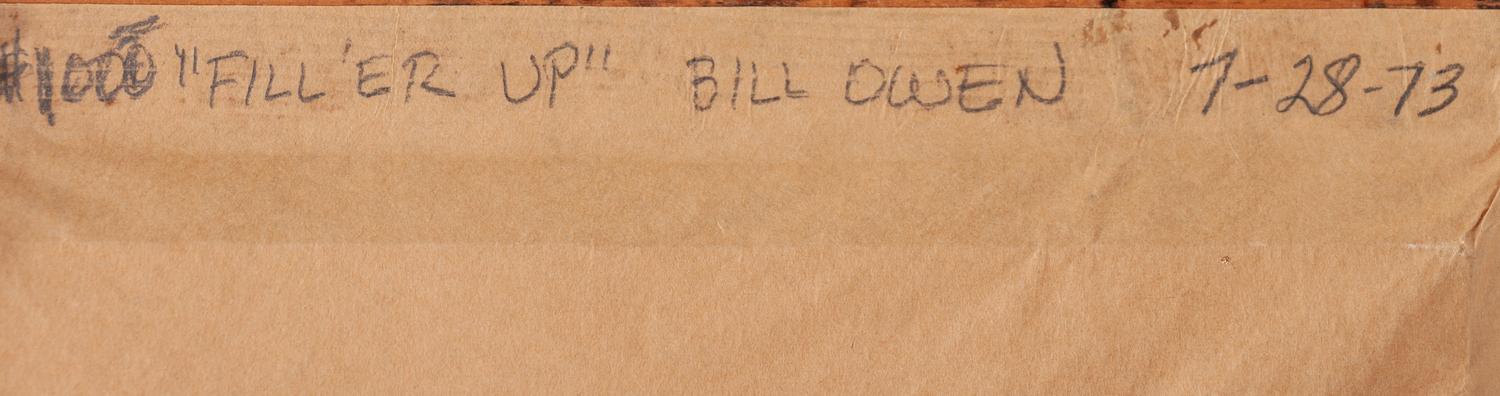 $1000 "FILL 'ER UP" BILL OWEN 7-28-73